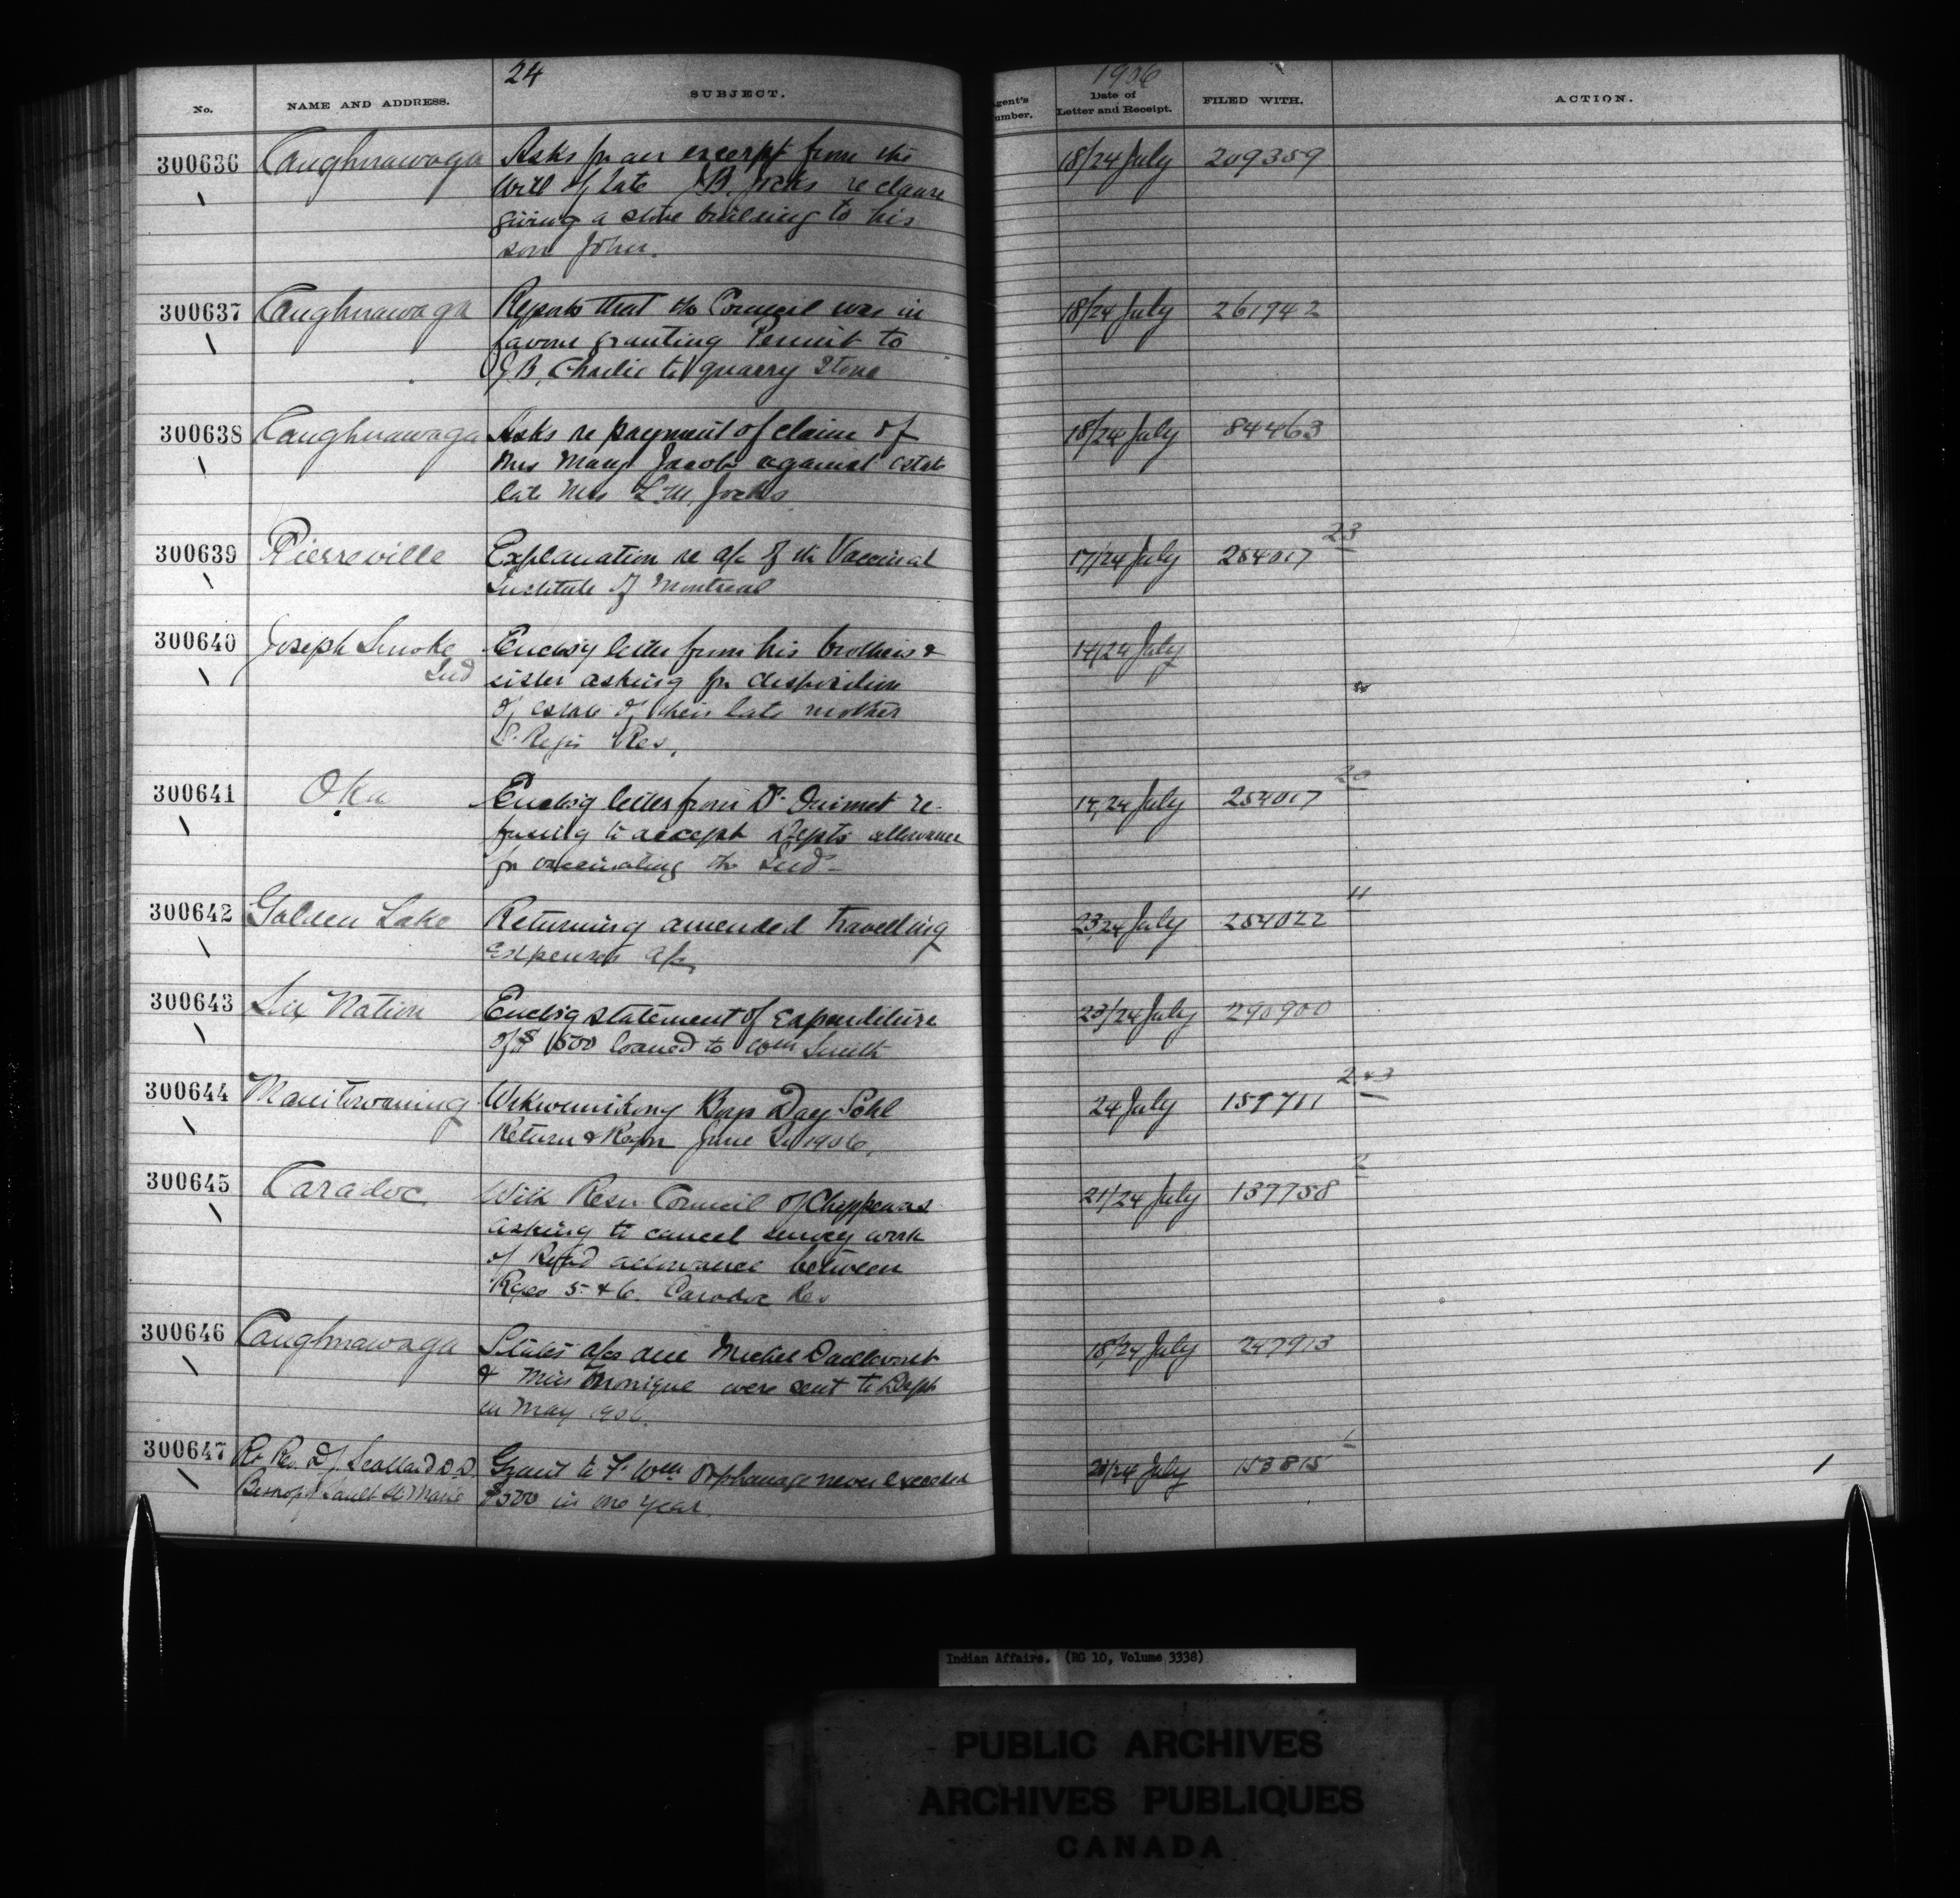 24
1906
No.
NAME AND ADDRESS.
SUBJECT.
gent's
umber.
Date of
Letter and Receipt.
FILED WITH.
ACTION.
300636 Caughnawaga Asks for an excerpt from the 18/24 July 209359
Will of late J.B. Jocks re clause
giving a stone building to his
son John.
300637 Caughnawaga Reports that the Council was in 18/24 July 261942
favour granting Permit to
J.B. Charlie to quarry Stone
300638 Caughnawaga Asks re payment of claim of 18/24 July 84463
Mrs Mary Jacob against estate
late Mrs L.M. Jocks
23
300639 Pierreville Explanation re a/c of the Vaccinal 17/24 July 254017
Institute of Montreal
300640 Joseph Smoke Enclosg letter from his brothers & 14/24 July
Ind sister asking for disposition
of estate of their late mother
St. Regis Res.
20
300641 Oka Enclosg letter from Dr Ouimet re- 14/24 July 254017
fusing to accept Depts allowance
for vaccinating the Inds
11
300642 Golden Lake Returning amended travelling 23/24 July 254022
expenses a/c
300643 Six Nation Enclosg statement of Expenditure 23/24 July 290900
of $1500 loaned to Wm Smith
243
300644 Manitowaning Wikwemikong Boys Day Schl 24 July 157711
Return & June 1906.
2
300645 Caradoc With Resn Council of Chippewas 21/24 July 137758
asking to cancel survey work
of Road allowance between
Rges 5 & 6. Caradoc Res
300646 Caughnawaga States a/cs due Michel Dailleboust 18/24 July 247913
& Mitis Monique were sent to Dept
in May 1906.
1
300647 Rt Rev. D.J. Scollard D.D. Grant to Ft Wm Orphanage never exceeded 20/24 July 153815
Bishop of Sault Ste Marie $500 in one year.
Indian Affairs. (RG 10, Volume 3338)
PUBLIC ARCHIVES
ARCHIVES PUBLIQUES
CANADA